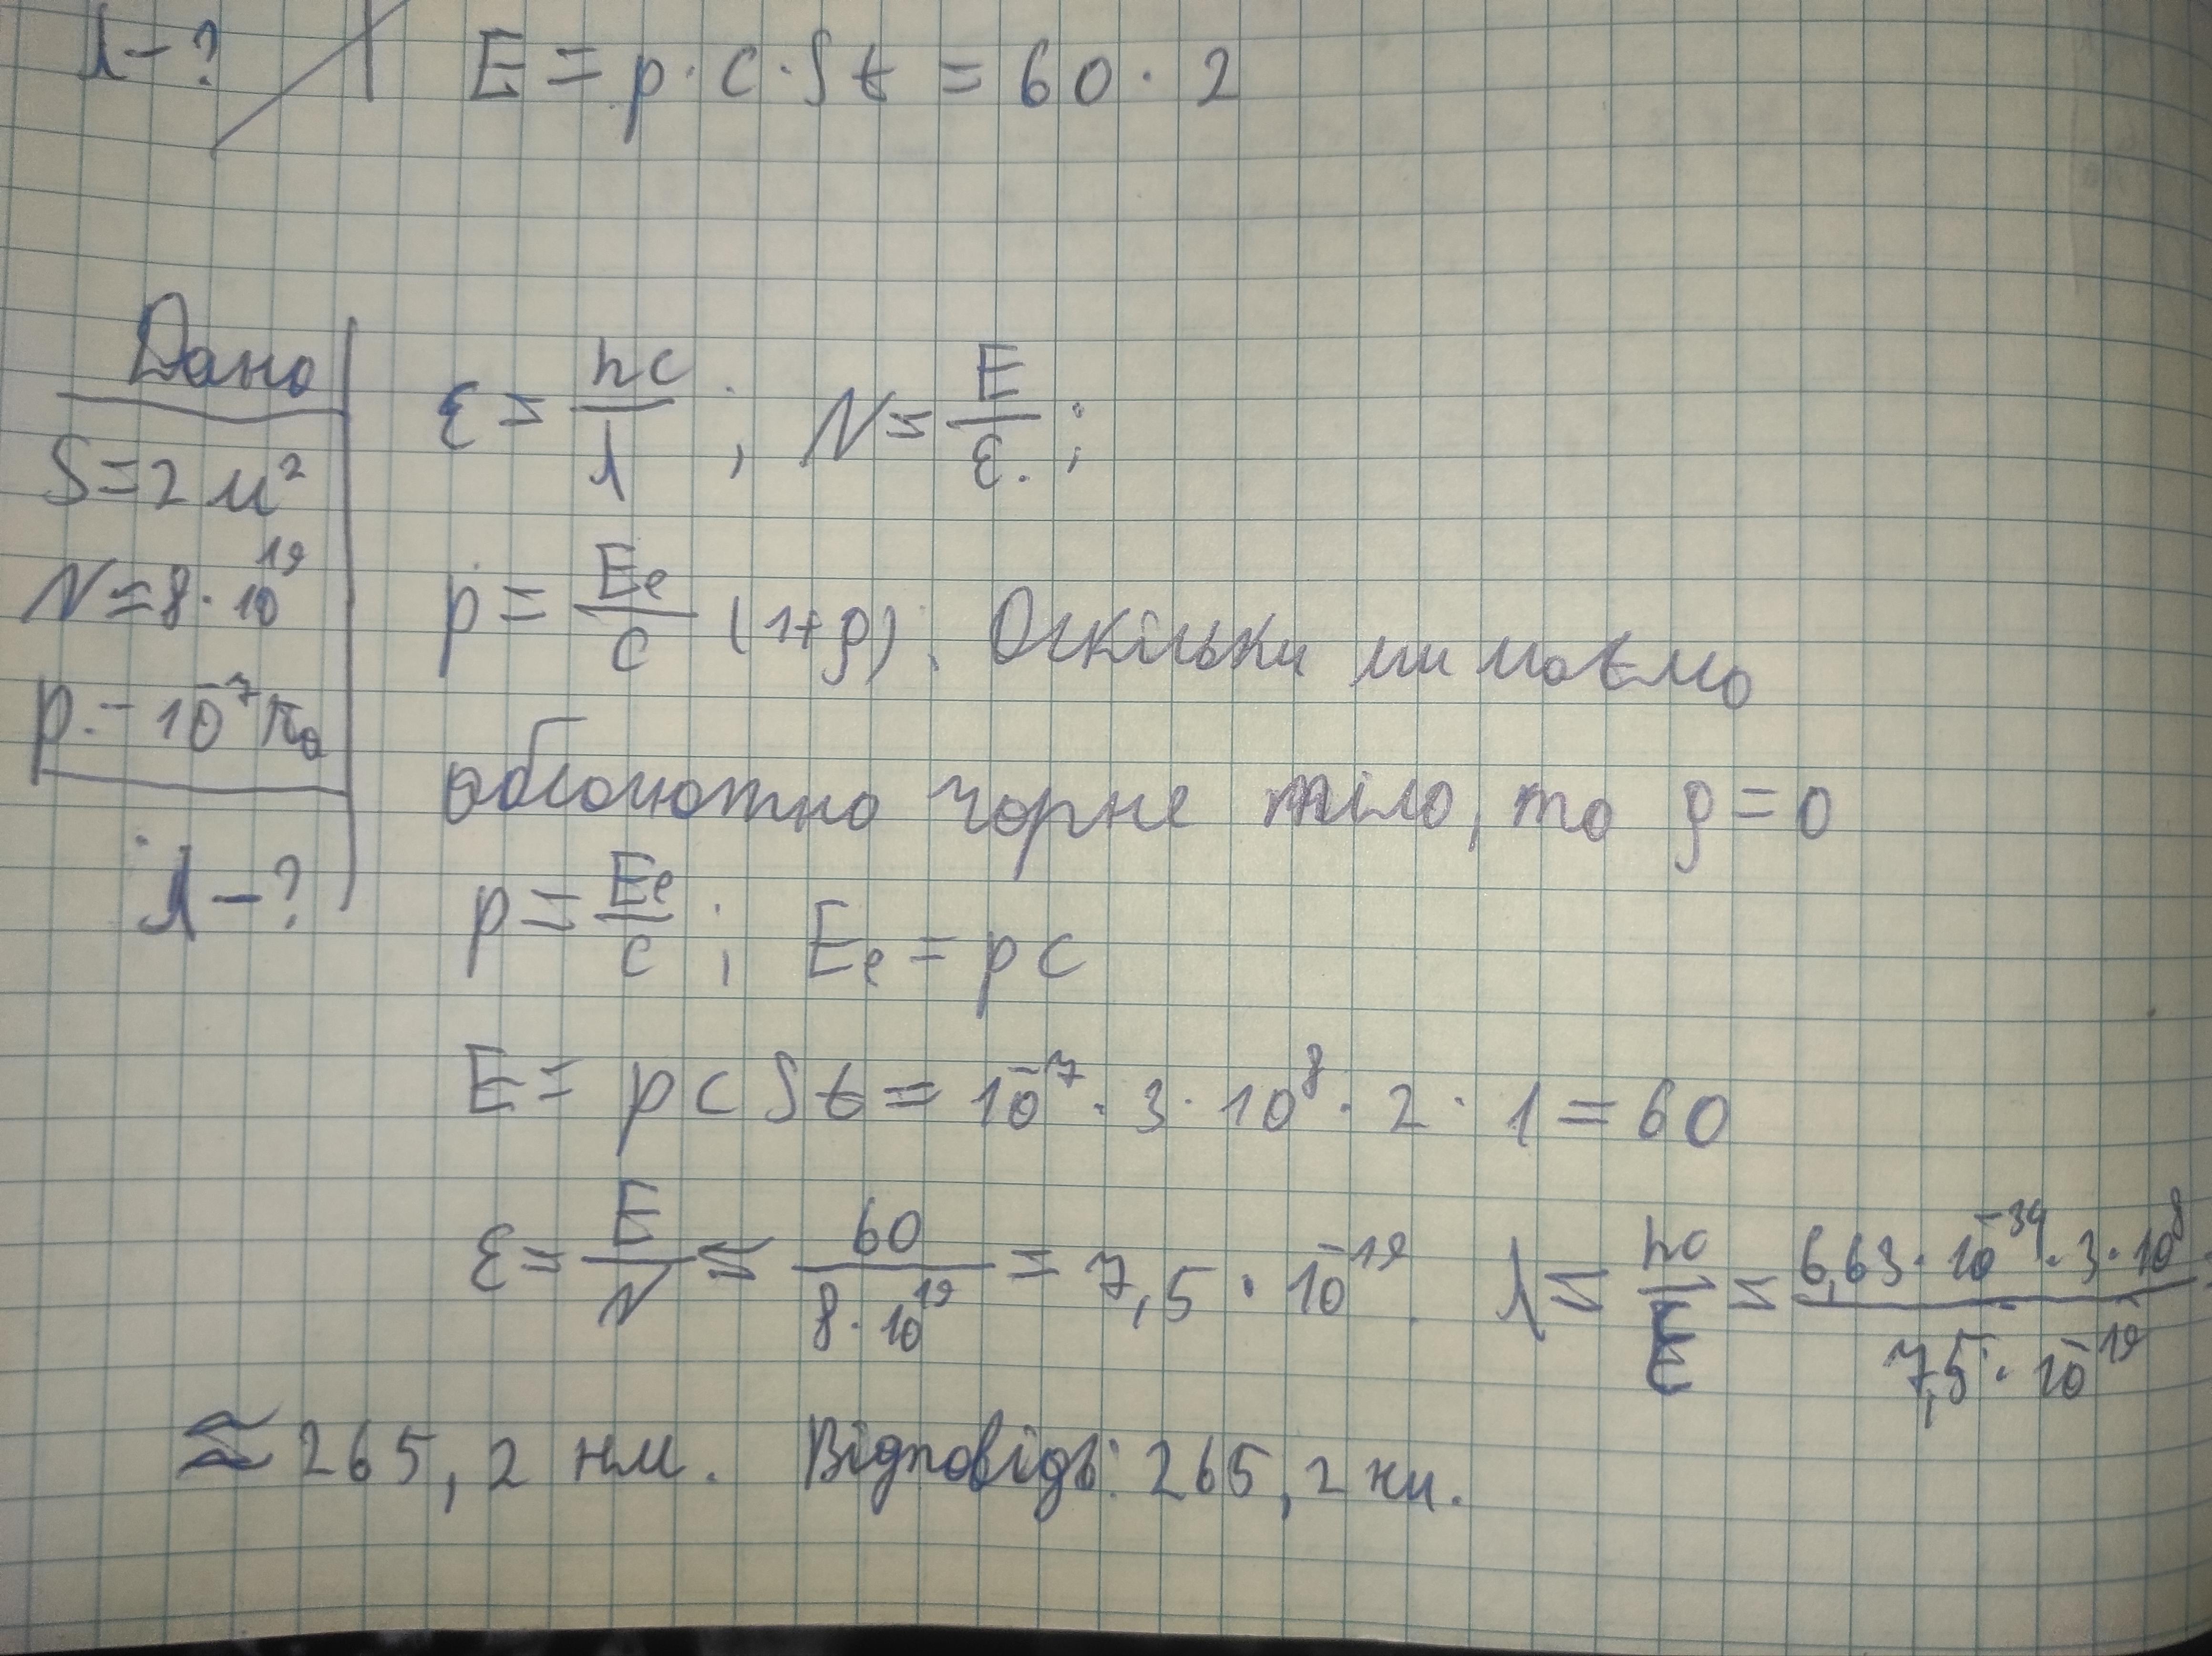 λ-?
E = p·c·St = 60·2
Дано
S=2 м²
N=8·10¹⁹
p=10⁻⁷ Па
λ-?
ε = hc/λ ; N = E/ε ;
p = Eₑ/c (1+ρ). Оскільки ми маємо
абсолютно чорне тіло, то ρ=0
p = Eₑ/c ; Eₑ = pc
E = pcSt = 10⁻⁷·3·10⁸·2·1 = 60
ε = E/N = 60/8·10¹⁹ = 7,5·10⁻¹⁹ λ = hc/ε = 6,63·10⁻³⁴·3·10⁸/7,5·10⁻¹⁹
≈ 265,2 нм. Відповідь: 265,2 нм.